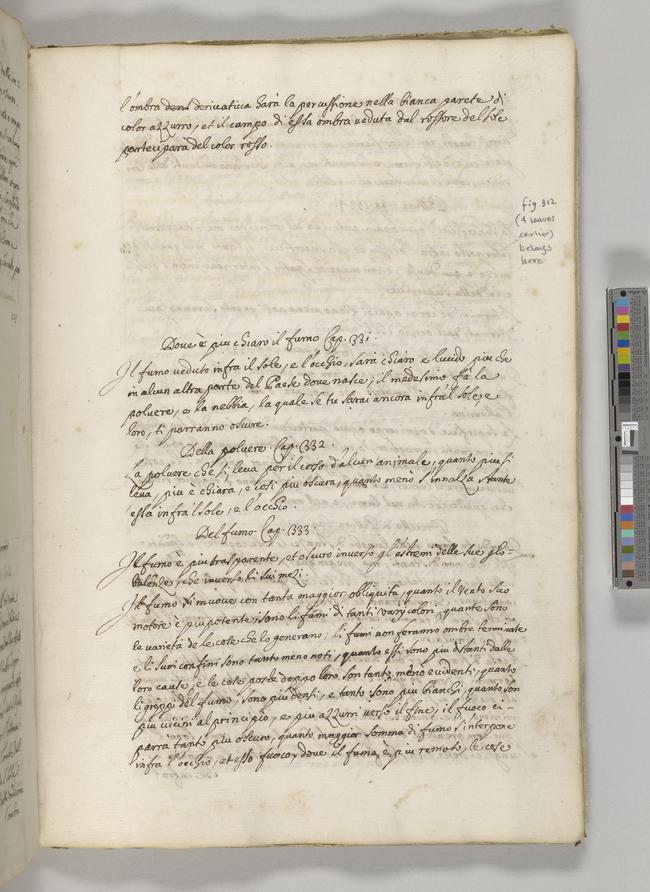 l'ombra deri derivativa harà la percussione nella bianca parete di
color azzurro, et il campo di essa ombra veduta dal rossore del sole
participara del color rosso.
fig. 352
(4 leaves
earlier)
belongs
here
Dove è piu chiaro il fumo Cap. 331.
Il fumo veduto infra il sole, e l'occhio, sarà chiaro e lucido piu che
in alcun altra parte del Paese dove nasce; il medesimo fà la
polvere, e la nebbia, la quale se tu sarai ancora infra'l sole, e
loro, ti parranno oscure.
Della polvere Cap. 332.
La polvere che si leva per il corso d'alcun animale, quanto piu si
leva, piu è chiara, e cosi piu oscura, quanto meno s'innalza stante
essa infra'l sole, e l'occhio.
Del fumo Cap. 333.
Il fumo è piu trasparente, et oscuro inverso gl'estremi delle sue glo-
bulenze, che inverso li sui mezi.
Il fumo si muove con tanta maggior obliquità, quanto il vento suo
motore è piu potente; sono li fumi di tanti varij colori, quante sono
le varietà de le cose che lo generano; li fumi non feranno ombre terminate
e li suoi confini sono tanto meno noti, quanto essi sono piu distanti dalle
loro cause, e le cose poste doppo loro son tanto meno evidenti, quanto
li groppi del fumo, sono piu densi, e tanto sono piu bianchi, quanto son
piu vicini al principio, e piu azzurri verso il fine, il fuoco ci
parra tanto piu oscuro, quanto maggior somma di fumo s'interpone
infra l'occhio, et esso fuoco, dove il fumo è piu remoto, le cose